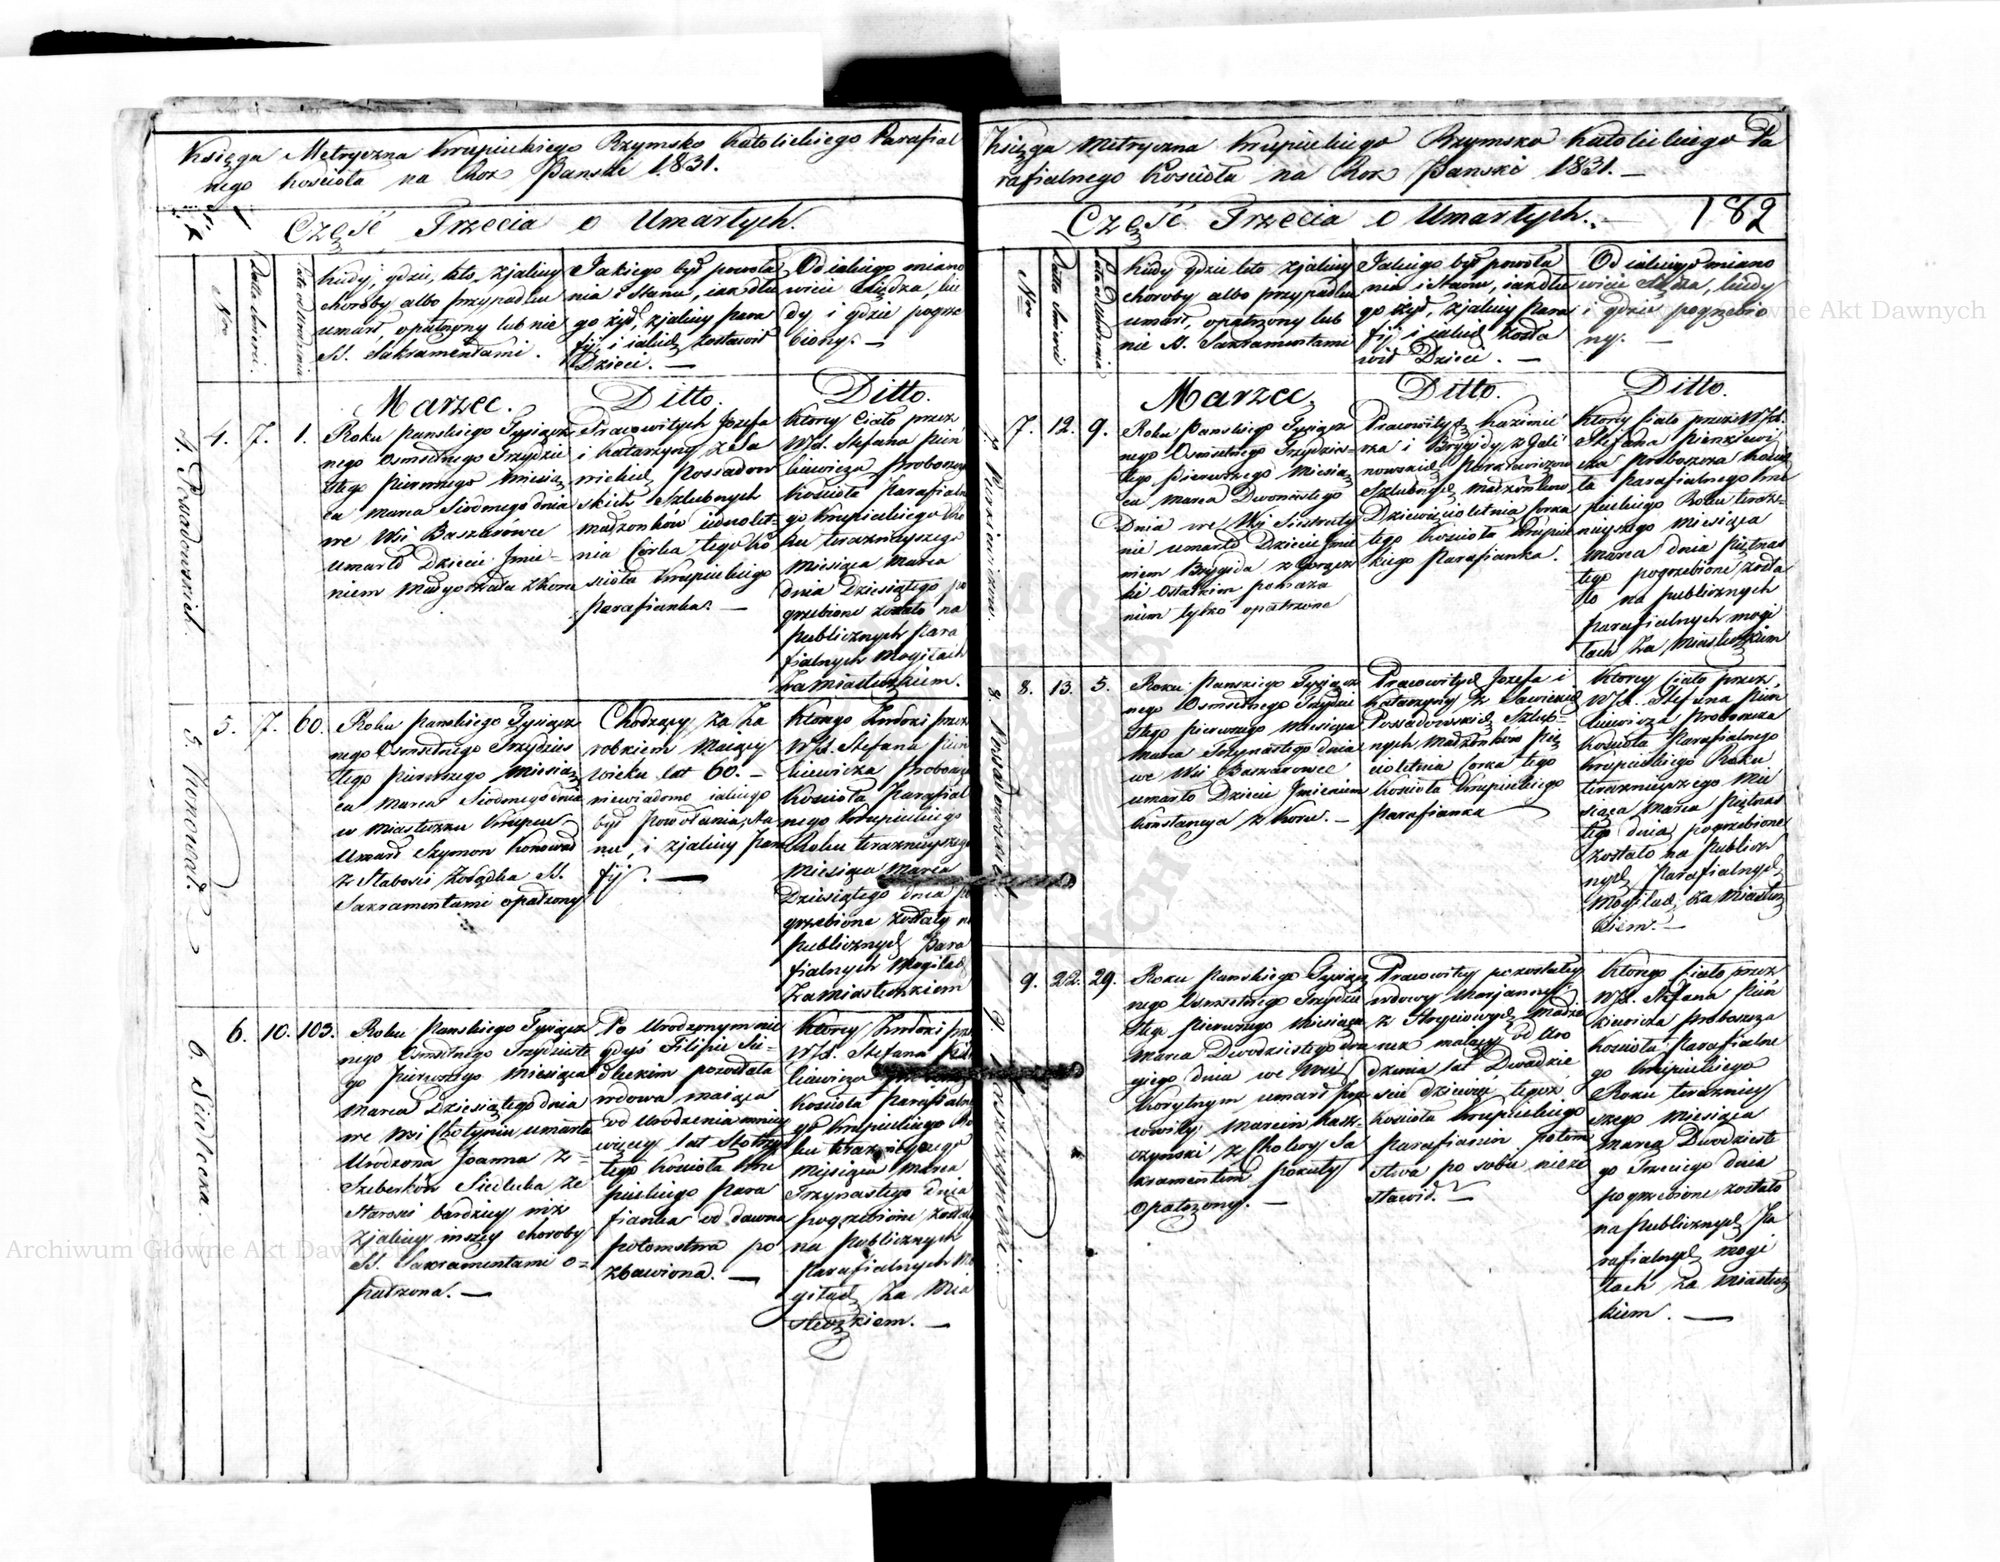 Księga Metryczna Krupieckiego Rzymsko Katolickiego Parafial
nego Kościoła na Rok Pański 1831.
Część Trzecia o Umarłych.
Nro
Datta Śmierci.
Lata od Urodzenia
Kiedy, gdzie, kto, zjakiey
choroby albo przypadku
umarł, opatrzny lub nie
SS. Sakramentami.
Jakiego był powoła
nia i Stanu, iak dłu
go żył, zjakiey para
fij, i iakich zostawił
Dzieci. —
Od iakiego miano
wicie Xiędza, kie
dy i gdzie pogrze
biony. —
Marzec.
Ditto.
Ditto.
4. Possadowskich.
4. 7. 1.
Roku Panskiego Tysiącz
nego Osmsetnego Trzydzie
stego pierwszego Miesią
ca Marca Siódmego dnia
we Wsi Baszarówce
umarło Dziecie Jmie-
niem Małgorzata z Koru
Pracowitych Jozefa
i Katarzyny z Sa
wickich Possadow
skich Szlubnych
Małżonków iednolet-
nia Córka tegoż Ko
ścioła Krupieckiego
parafianka. —
Ktorey Ciało przez
WJX. Stefana Pień
kiewicza Proboszcza
Kościoła Parafialne
go Krupieckiego Ro
ku teraznieyszego
Miesiąca Marca
dnia Dziesiątego po
grzebione zostało na
Publicznych Para
fialnych Mogiłach
za Miasteczkiem.
5. Konował.
5. 7. 60.
Roku Panskiego Tysiącz
nego Osmsetnego Trzydzies
tego pierwszego Miesią
ca Marca Siodmego dnia
w Miasteczku Krupcu
Umarł Szymon Konował
z Słabości Żołądka SS.
Sakramentami opatrzony
Chodzący za Za
robkiem Maiący
wieku lat 60. —
niewiadomo iakiego
był Powołania, Sta
nu, i zjakiey Para
fij. —
Ktorego Zwłoki przez
WJX. Stefana Pień
kiewicza Proboszcza
Kościoła Parafial
nego Krupieckiego
Roku teraznieyszego
Miesiąca Marca
Dziesiątego dnia po
grzebione zostały na
Publicznych Para
fialnych Mogiłach
za Miasteczkiem
6. Siedlecka.
6. 10. 103.
Roku Panskiego Tysiącz
nego Osmsetnego Trzydzieste
go Pierwszego Miesiąca
Marca Dziesiątego dnia
we Wsi Chotyniu umarła
Urodzona Joanna z
Szeberków Siedlecka ze
Starosci bardziey niż
zjakiey inszey choroby
SS. Sakramentami o-
patrzona. —
Po Urodzonym nie
gdyś Filipie Sie-
dleckim pozostała
wdowa maiąca
od Urodzenia mniey
więcey lat Sto trzy
tego Kościoła Kru
pieckiego Para
fianka od dawna
potomstwa po
zbawiona. —
Ktorey Zwłoki przez
WJX. Stefana Pień
kiewicza Proboszcza
Kościoła Parafialne
go Krupieckiego Ro
ku teraznieyszego
Miesiąca Marca
Trzynastego dnia
pogrzebione zostały
na Publicznych
Parafialnych Mo
giłach za Mia
steczkiem. —
Księga Metryczna Krupieckiego Rzymsko Katolickiego Pa
rafialnego Kościoła na Rok Pański 1831. —
Część Trzecia o Umarłych. —
182
Nro
Datta Śmierci
Lata od Urodzenia
Kiedy gdzie kto zjakiey
choroby albo przypadku
umarł, opatrzony lub
nie SS. Sakramentami
Jakiego był powoła
nia i Stanu, iak dłu
go żył, zjakiey Para
fij i iakich Zosta
wił Dzieci. —
Od iakiego miano
wicie Xiędza, kiedy
i gdzie pogrzebio
ny. —
Marzec.
Ditto.
Ditto.
7. 12. 9.
Roku Panskiego Tysiącz
nego Osmsetnego Trzydzies-
tego Pierwszego Miesią
ca Marca Dwonastego
Dnia we Wsi Siestraty
nie umarło Dziecie Jmie
niem Brygida z Gorącz
ki Ostatnim pomaza
niem tylko opatrzone
Pracowitych Kazimie
rza i Brygidy z Kali
nowskich
Szlubnych Małżonkow
Dziewięcioletnia Corka
tego Kościoła Krupiec
kiego Parafianka.
Ktorey Ciało przez WJX.
Stefana Pienkiewi
cza Proboszcza Koscio
ła Parafialnego Kru
pieckiego Roku teraz-
nieyszego Miesiąca
Marca dnia Piętnas
tego pogrzebione zosta
ło na Publicznych
Parafialnych mogi
łach za Miasteczkiem
8. Possadowskich.
8. 13. 5.
Roku Panskiego Tysiącz
nego Osmsetnego Trzydzie
stego pierwszego Miesiąca
Marca Trzynastego dnia
we Wsi Baszarowce
umarło Dziecie Jmieniem
Konstancya z Koru. —
Pracowitych Jozefa i
Katarzyny z Sawickich
Possadowskich Szlub-
nych Małżonkow Pię
cioletnia Corka tego
Kościoła Krupieckiego
parafianka
Ktorey Ciało przez
WJX. Stefana Pień
kiewicza Proboszcza
Kościoła Parafialnego
Krupieckiego Roku
teraznieyszego Mie
siąca Marca Piętnas
tego dnia pogrzebione
zostało na Publicz
nych Parafialnych
Mogiłach za Miastecz
kiem. —
9. 22. 29.
Roku Panskiego Tysiącz
nego Osmsetnego Trzydzie
stego pierwszego Miesiąca
Marca Dwodziestego dru
giego dnia we Wsi
Korytnym umarł Pra
cowity Marcin Kasz-
czynski z Cholery Sa
kramentem pokuty
Opatrzony. —
Pracowitey pozostałey
wdowy Marjanny
z Małżo
nek maiący od Uro
dzenia lat Dwadzie
ścia dziewięć tegoż
Kościoła Krupieckiego
parafianin potom
stwa po sobie nie zo
stawił. —
Ktorego Ciało przez
WJX. Stefana Pień
kiewicza Proboszcza
Kościoła Parafialne
go Krupieckiego
Roku terazniey
szego Miesiąca
Marca Dwodzieste
go Trzeciego dnia
pogrzebione zostało
na Publicznych Pa
rafialnych mogi
łach za Miastecz
kiem. —
Archiwum Główne Akt Dawnych
Główne Akt Dawnych